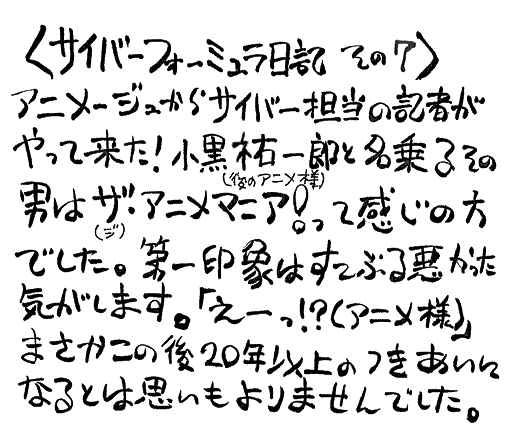 〈サイバーフォーミュラ日記 その7〉
アニメージュからサイバー担当の記者が
やって来た!小黒祐一郎と名乗るその
(後のアニメ様)
男はザ・アニメマニア!って感じの方
(ジ)
でした。第一印象はすこぶる悪かった
気がします。「えーっ!?(アニメ様)」
まさかこの後20年以上のつきあいに
なるとは思いもよりませんでした。